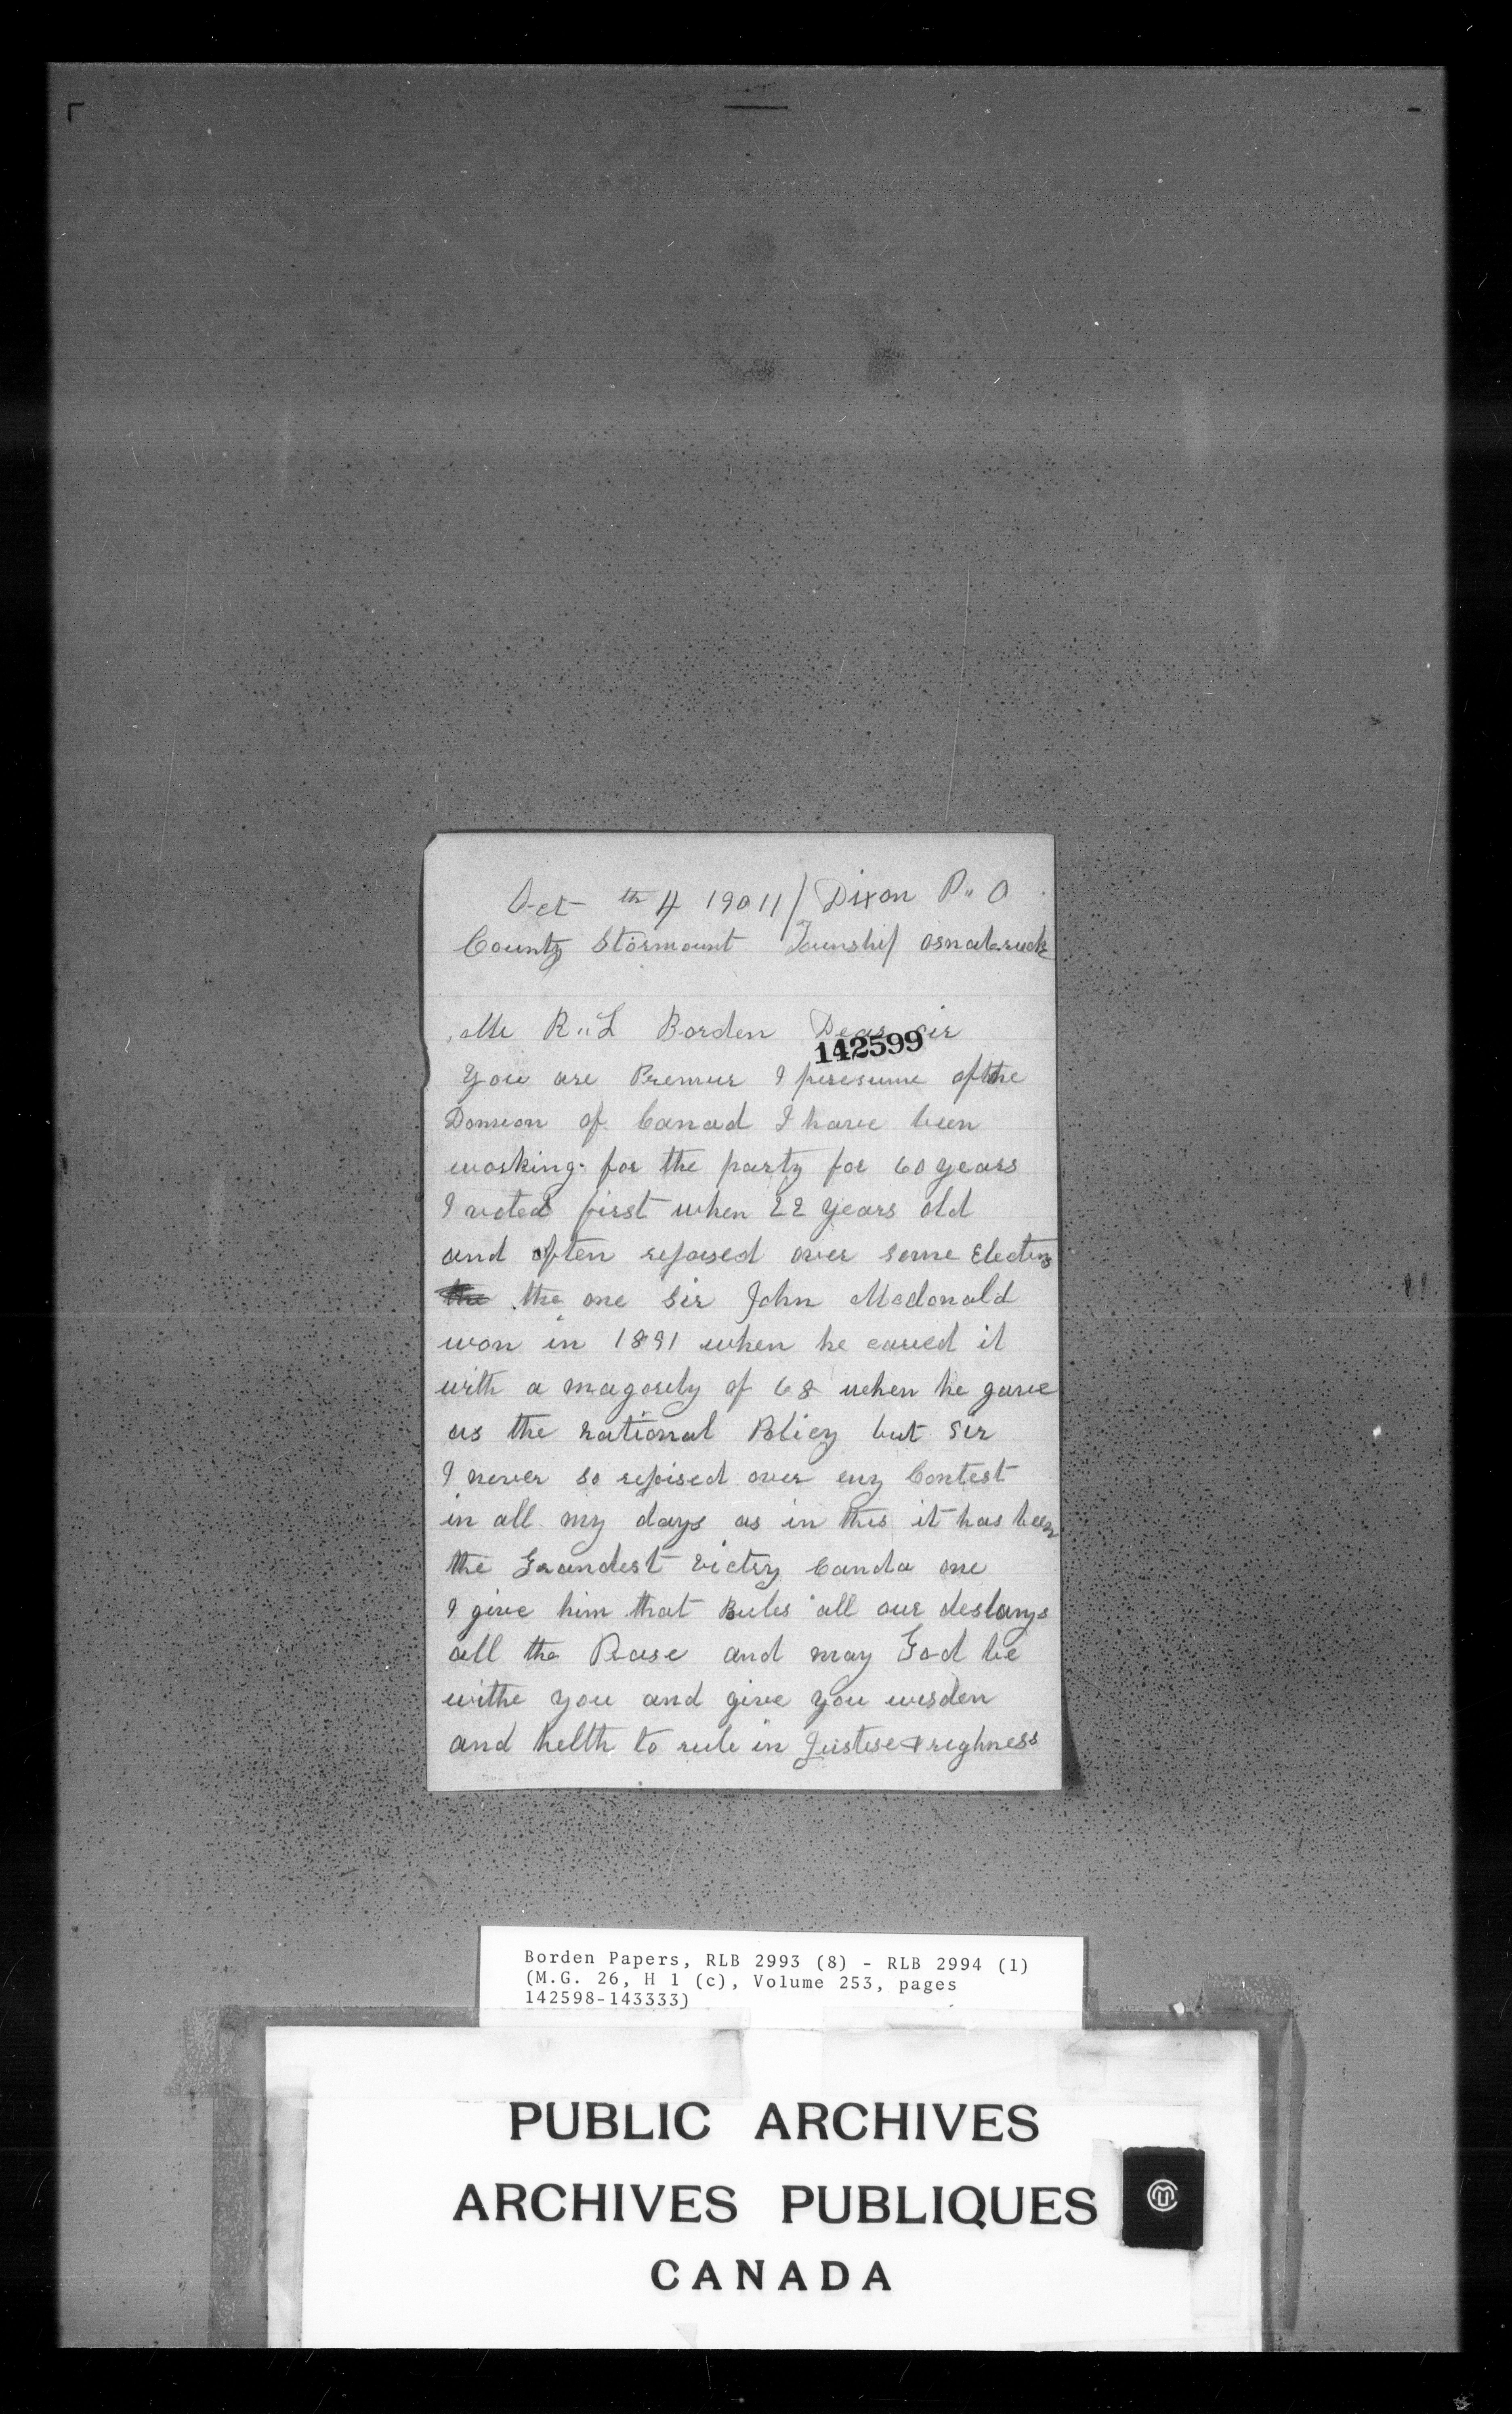 Oct th 4 19011/ Dixon P" O
County Stormount Township Osnabruck
Mr R" L Borden Dear sir
142599
You are Premur I presume of the
Domeon of Canad I have been
working for the party for 60 years
I voted first when 22 years old
and often rejoised over some Electins
the the one Sir John Mcdonald
won in 1891 when he caried it
with a magority of 68 when he gave
us the national Policy but Sir
I never so rejoised over eny Contest
in all my days as in this it has been
the Grandest Victry Canda one
I give him that Rules all our destanys
all the Prase and may God be
withe you and give you wisden
and helth to rule in Justise & righness
Borden Papers, RLB 2993 (8) - RLB 2994 (1)
(M.G. 26, H 1 (c), Volume 253, pages
142598-143333)
PUBLIC ARCHIVES
ARCHIVES PUBLIQUES
CANADA